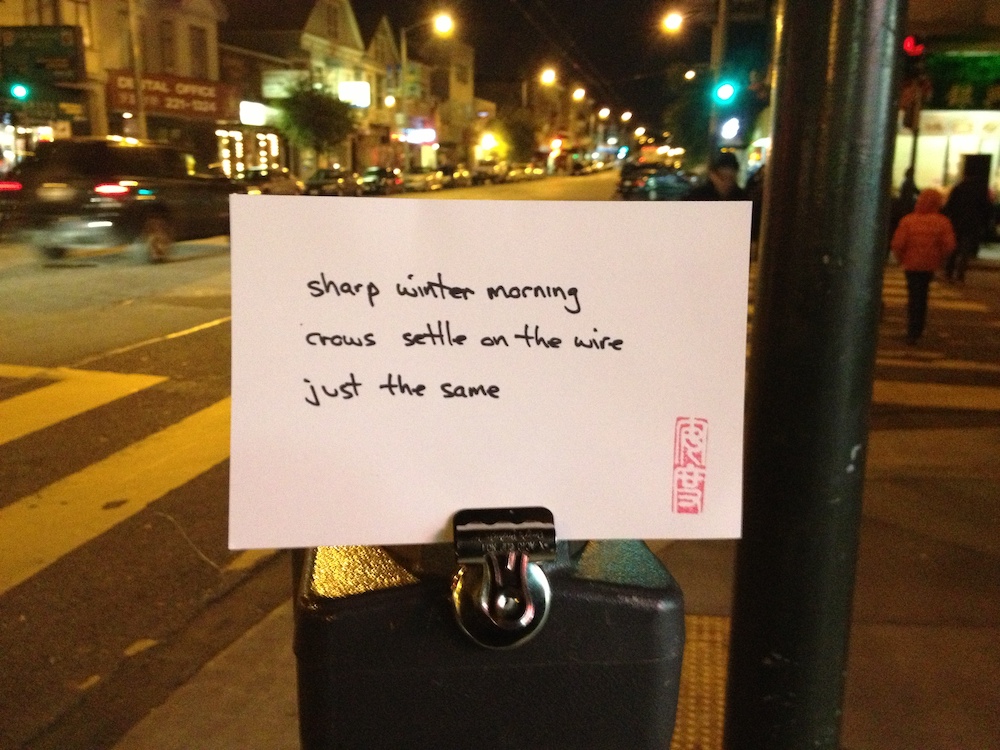 DENTAL OFFICE
221-
sharp winter morning
crows settle on the wire
just the same